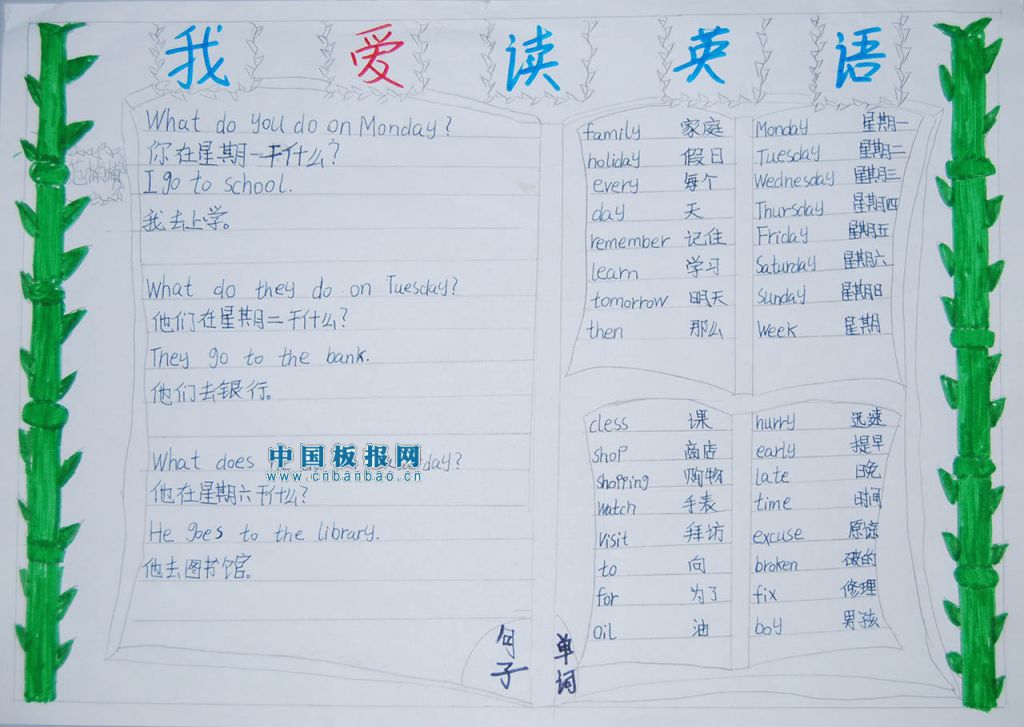 我爱读英语
What do you do on Monday?
你在星期一干什么?
I go to school.
我去上学。
What do they do on Tuesday?
他们在星期二干什么?
They go to the bank.
他们去银行。
What does day?
他在星期六干什么?
He goes to the library.
他去图书馆。
句子
中国板报网
www.cnbanbao.cn
family 家庭
holiday 假日
every 每个
day 天
remember 记住
learn 学习
tomorrow 明天
then 那么
Monday 星期一
Tuesday 星期二
Wednesday 星期三
Thursday 星期四
Friday 星期五
Saturday 星期六
Sunday 星期日
Week 星期
cless 课
shop 商店
shopping 购物
Watch 手表
Visit 拜访
to 向
for 为了
Oil 油
hurry 迅速
early 提早
late 晚
time 时间
excuse 原谅
broken 破的
fix 修理
boy 男孩
单词